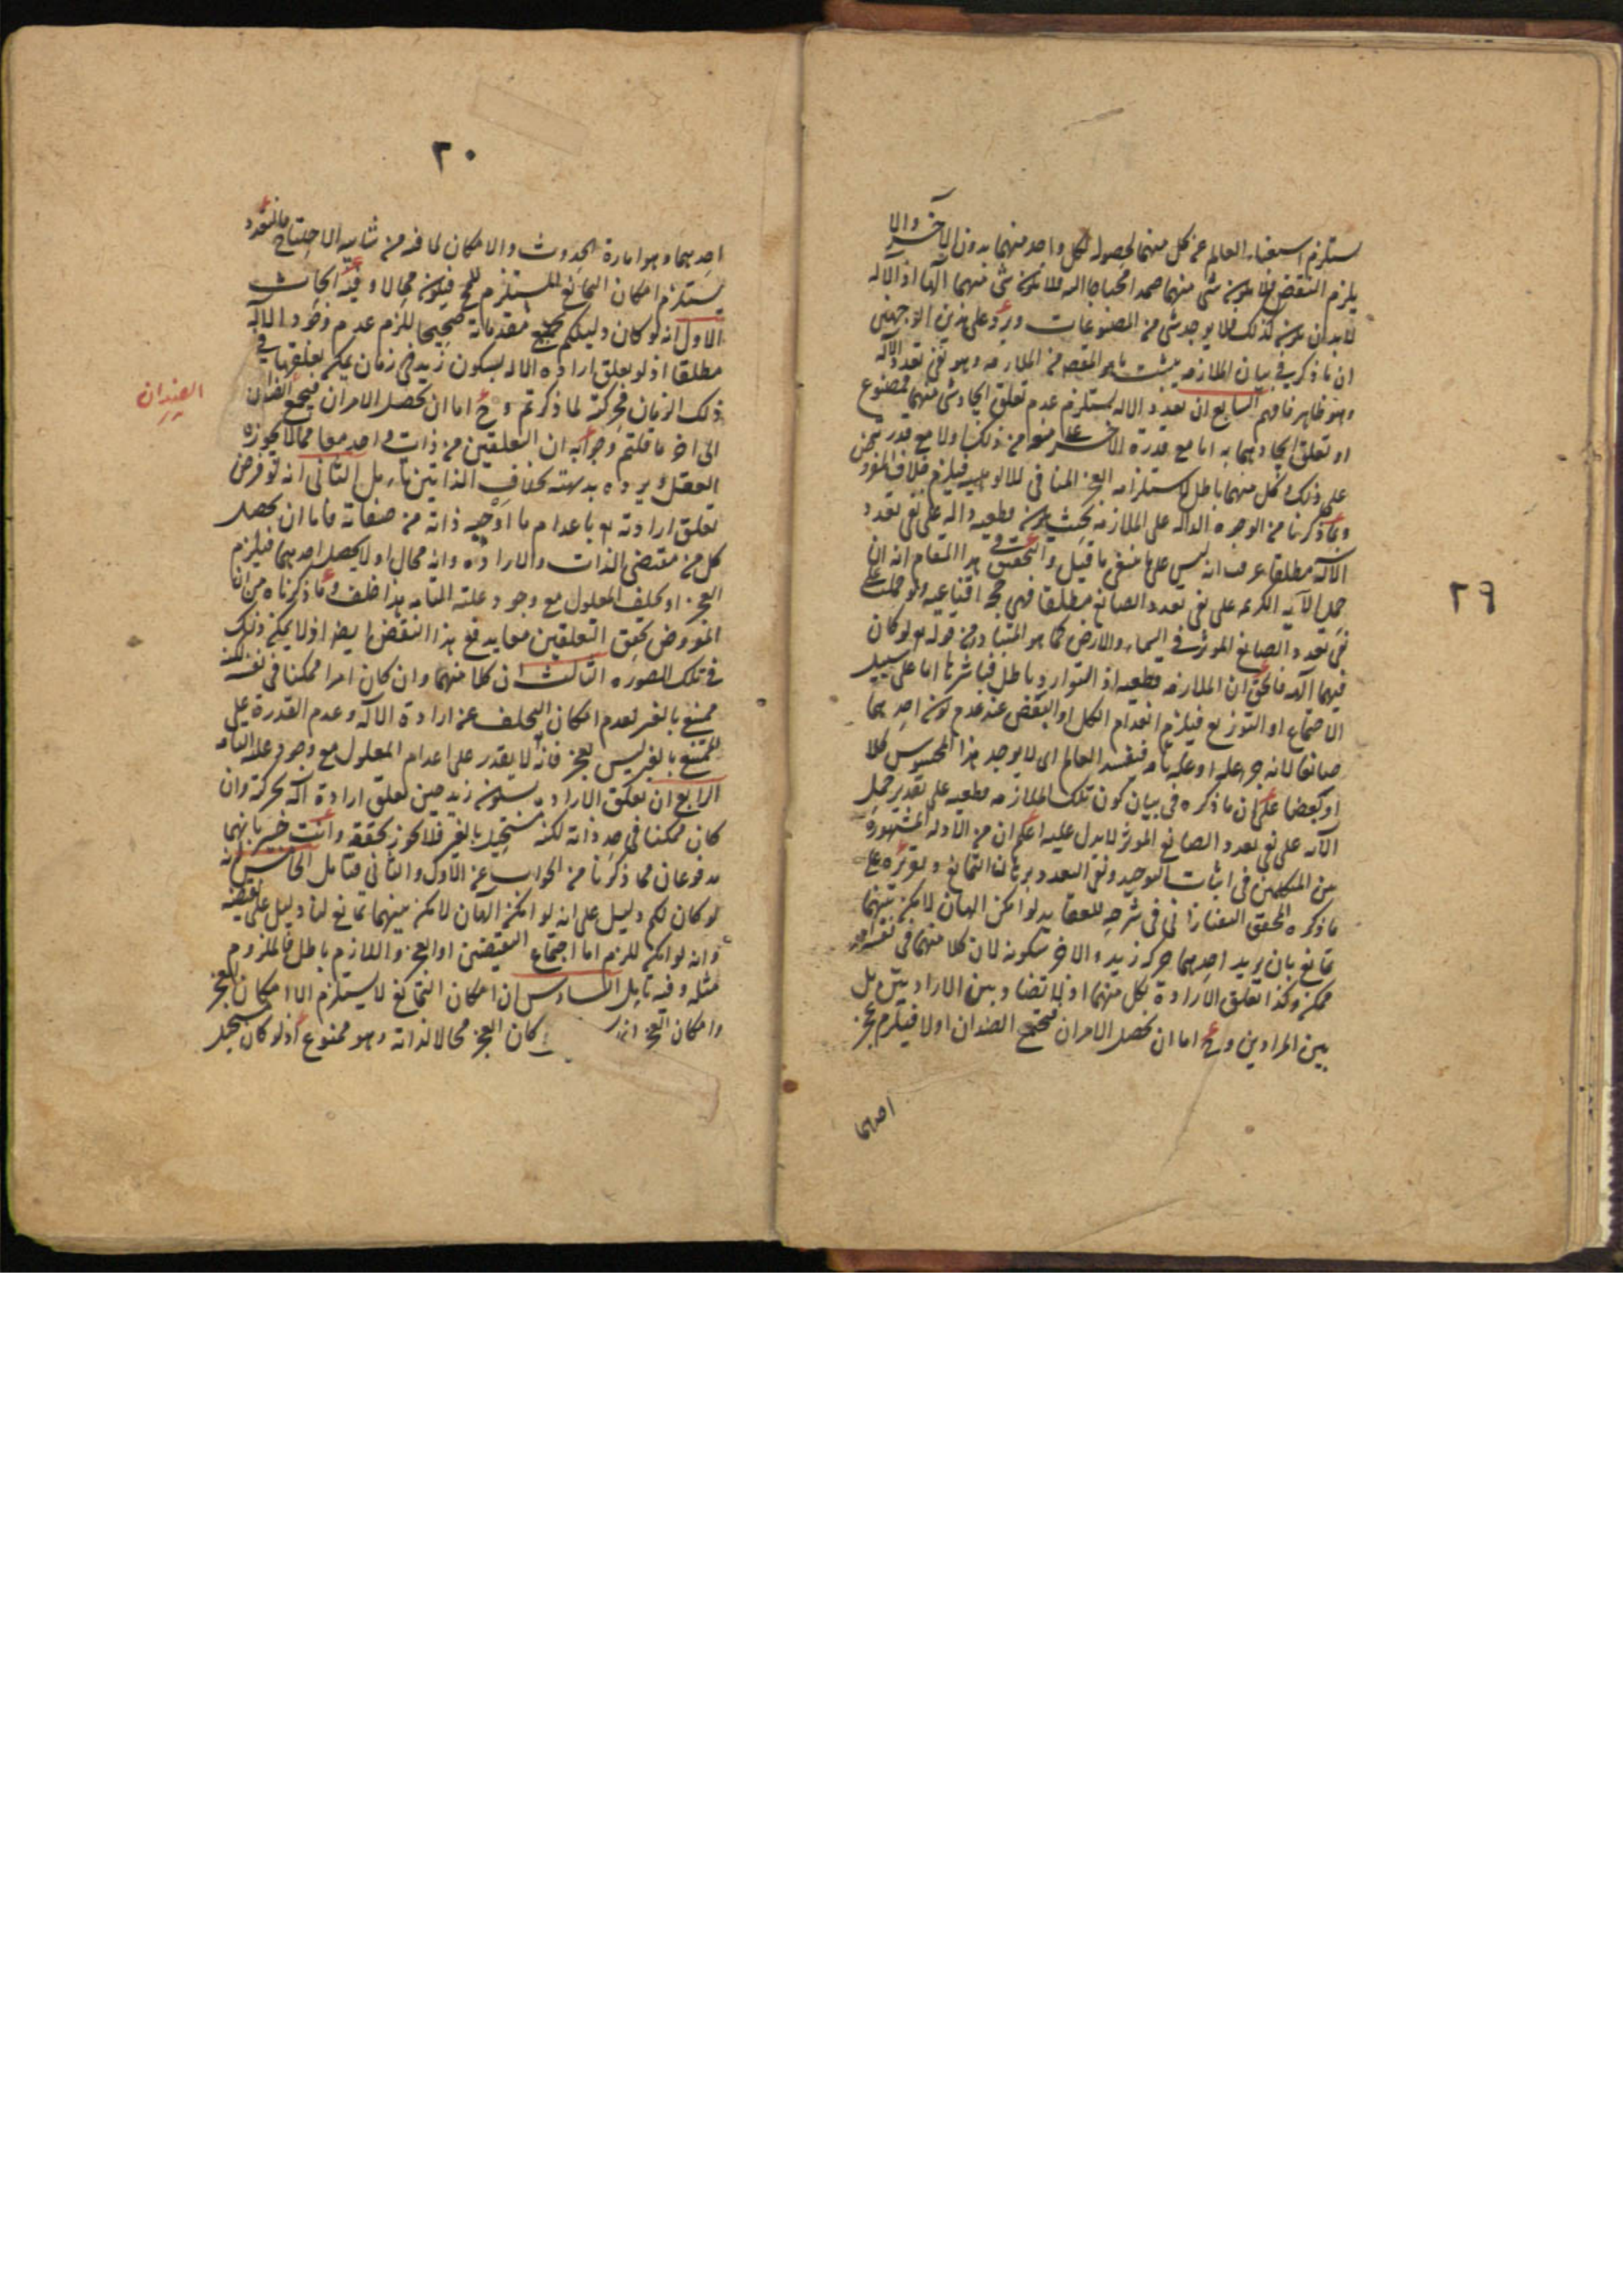 ٢٩
يستلزم استغناء العالم عن كل منهما لحصوله لكل واحد منهما بدون الآخر والا
يلزم النقض فلا يكون شئ منهما صمدا محتاجا اليه فلا يكون شئ منهما الها اذ الاله
لا بد ان يكون كذلك فلا يوجد شئ من المصنوعات ويرد على هذين الوجهين
ان ما ذكر في بيان الملازمة يثبت ما هو المقصد من الملازمة وهو نفي تعدد الاله
وهو ظاهر فافهم السابع ان تعدد الاله يستلزم عدم تعلق ايجاد شئ منهما لمصنوع
او تعلق ايجادهما به اما مع قدرة الاخر على منعه من ذلك اولا مع قدرته
على ذلك وكل منهما باطل لاستلزامه العجز المنافي للالوهية فيلزم خلاف المفروض
وبما ذكرنا من الوجوه الدالة على الملازمة بحيث يكون قطعية دالة على نفي تعدد
الآلهة مطلقا عرفت انه ليس على ما ينبغي ما قيل والتحقيق في هذا المقام انه ان
حمل الآية الكريمة على نفي تعدد الصانع مطلقا فهي حجة اقناعية ولو حملت على
نفي تعدد الصانع المؤثر في السماء والارض كما هو المتبادر من قوله تع لو كان
فيهما آلهة فالحق ان الملازمة قطعية اذ التوارد باطل فتأثيرها اما على سبيل
الاجتماع او التوزيع فيلزم انعدام الكل او البعض عند عدم كون احدهما
صانعا لانه جزء علة او علة تامة فيفسد العالم اى لا يوجد هذا المحسوس كلا
او بعضا على ان ما ذكره في بيان كون تلك الملازمة قطعية على تقدير حمل
الآية على نفي تعدد الصانع المؤثر لا يدل عليه اعلم ان من الادلة المشتهرة
بين المتكلمين في اثبات التوحيد ونفي التعدد برهان التمانع وتقريره على
ما ذكره المحقق التفتازاني في شرحه للعقايد لو امكن الهان لامكن بينهما
تمانع بان يريد احدهما حركة زيد والاخر سكونه لان كلا منهما في نفسه امر
ممكن وكذا تعلق الارادة بكل منهما اذ لا تضاد بين الارادتين بل
بين المرادين وح اما ان يحصل الامران فيجتمع الضدان اولا فيلزم عجز
احدهما
٣٠
احدهما وهو امارة الحدوث والامكان لما فيه من شايبة الاحتياج فالتعدد
يستلزم امكان التمانع المستلزم للمح فيكون محالا وفيه ابحاث
الاول انه لو كان دليلكم بجميع مقدماته صحيحا للزم عدم وجود الاله
مطلقا اذ لو تعلق ارادة الاله بسكون زيد في زمان يمكن تعلقها في
ذلك الزمان بحركته لما ذكرتم وح اما ان يحصل الامران فيجتمع الضدان
الضدان
الى اخر ما قلتم وجوابه ان التعلقين من ذات واحد معا مما لا يجوزه
العقل ويرده بديهته بخلاف الذاتين تأمل الثاني انه لو فرض
تعلق ارادته تع باعدام ما اوجبه ذاته من صفاته فاما ان يحصل
كل من مقتضى الذات والارادة وانه محال او لا يحصل احدهما فيلزم
العجز او تخلف المعلول مع وجود علته التامة هذا خلف وما ذكرناه من ان
المفروض تحقق التعلقين معا يدفع هذا النقض ايضا اذ لا يمكن ذلك
في تلك الصورة الثالث ان كلا منهما وان كان امرا ممكنا في نفسه لكنه
ممتنع بالغير لعدم امكان التخلف عن ارادة الآله وعدم القدرة على
الممتنع بالغير ليس بعجز فانه لا يقدر على اعدام المعلول مع وجود علته التامة
الرابع ان تعلق الارادة بسكون زيد حين تعلق ارادة آله بحركته وان
كان ممكنا في حد ذاته لكنه مستحيل بالغير فلا يجوز تحققه وانت خبير بانهما
مدفوعان مما ذكرنا من الجواب عن الاول والثاني فتامل الخامس انه
لو كان لكم دليل على انه لو امكن الهان لامكن بينهما تمانع لنا دليل على نقيضه
وانه لو امكن للزم اما اجتماع النقيضين او العجز واللازم باطل فالملزوم
مثله وفيه تأمل السادس ان امكان التمانع لا يستلزم الا امكان العجز
وامكان العجز كان العجز محالا لذاته وهو ممنوع اذ لو كان يستحيل